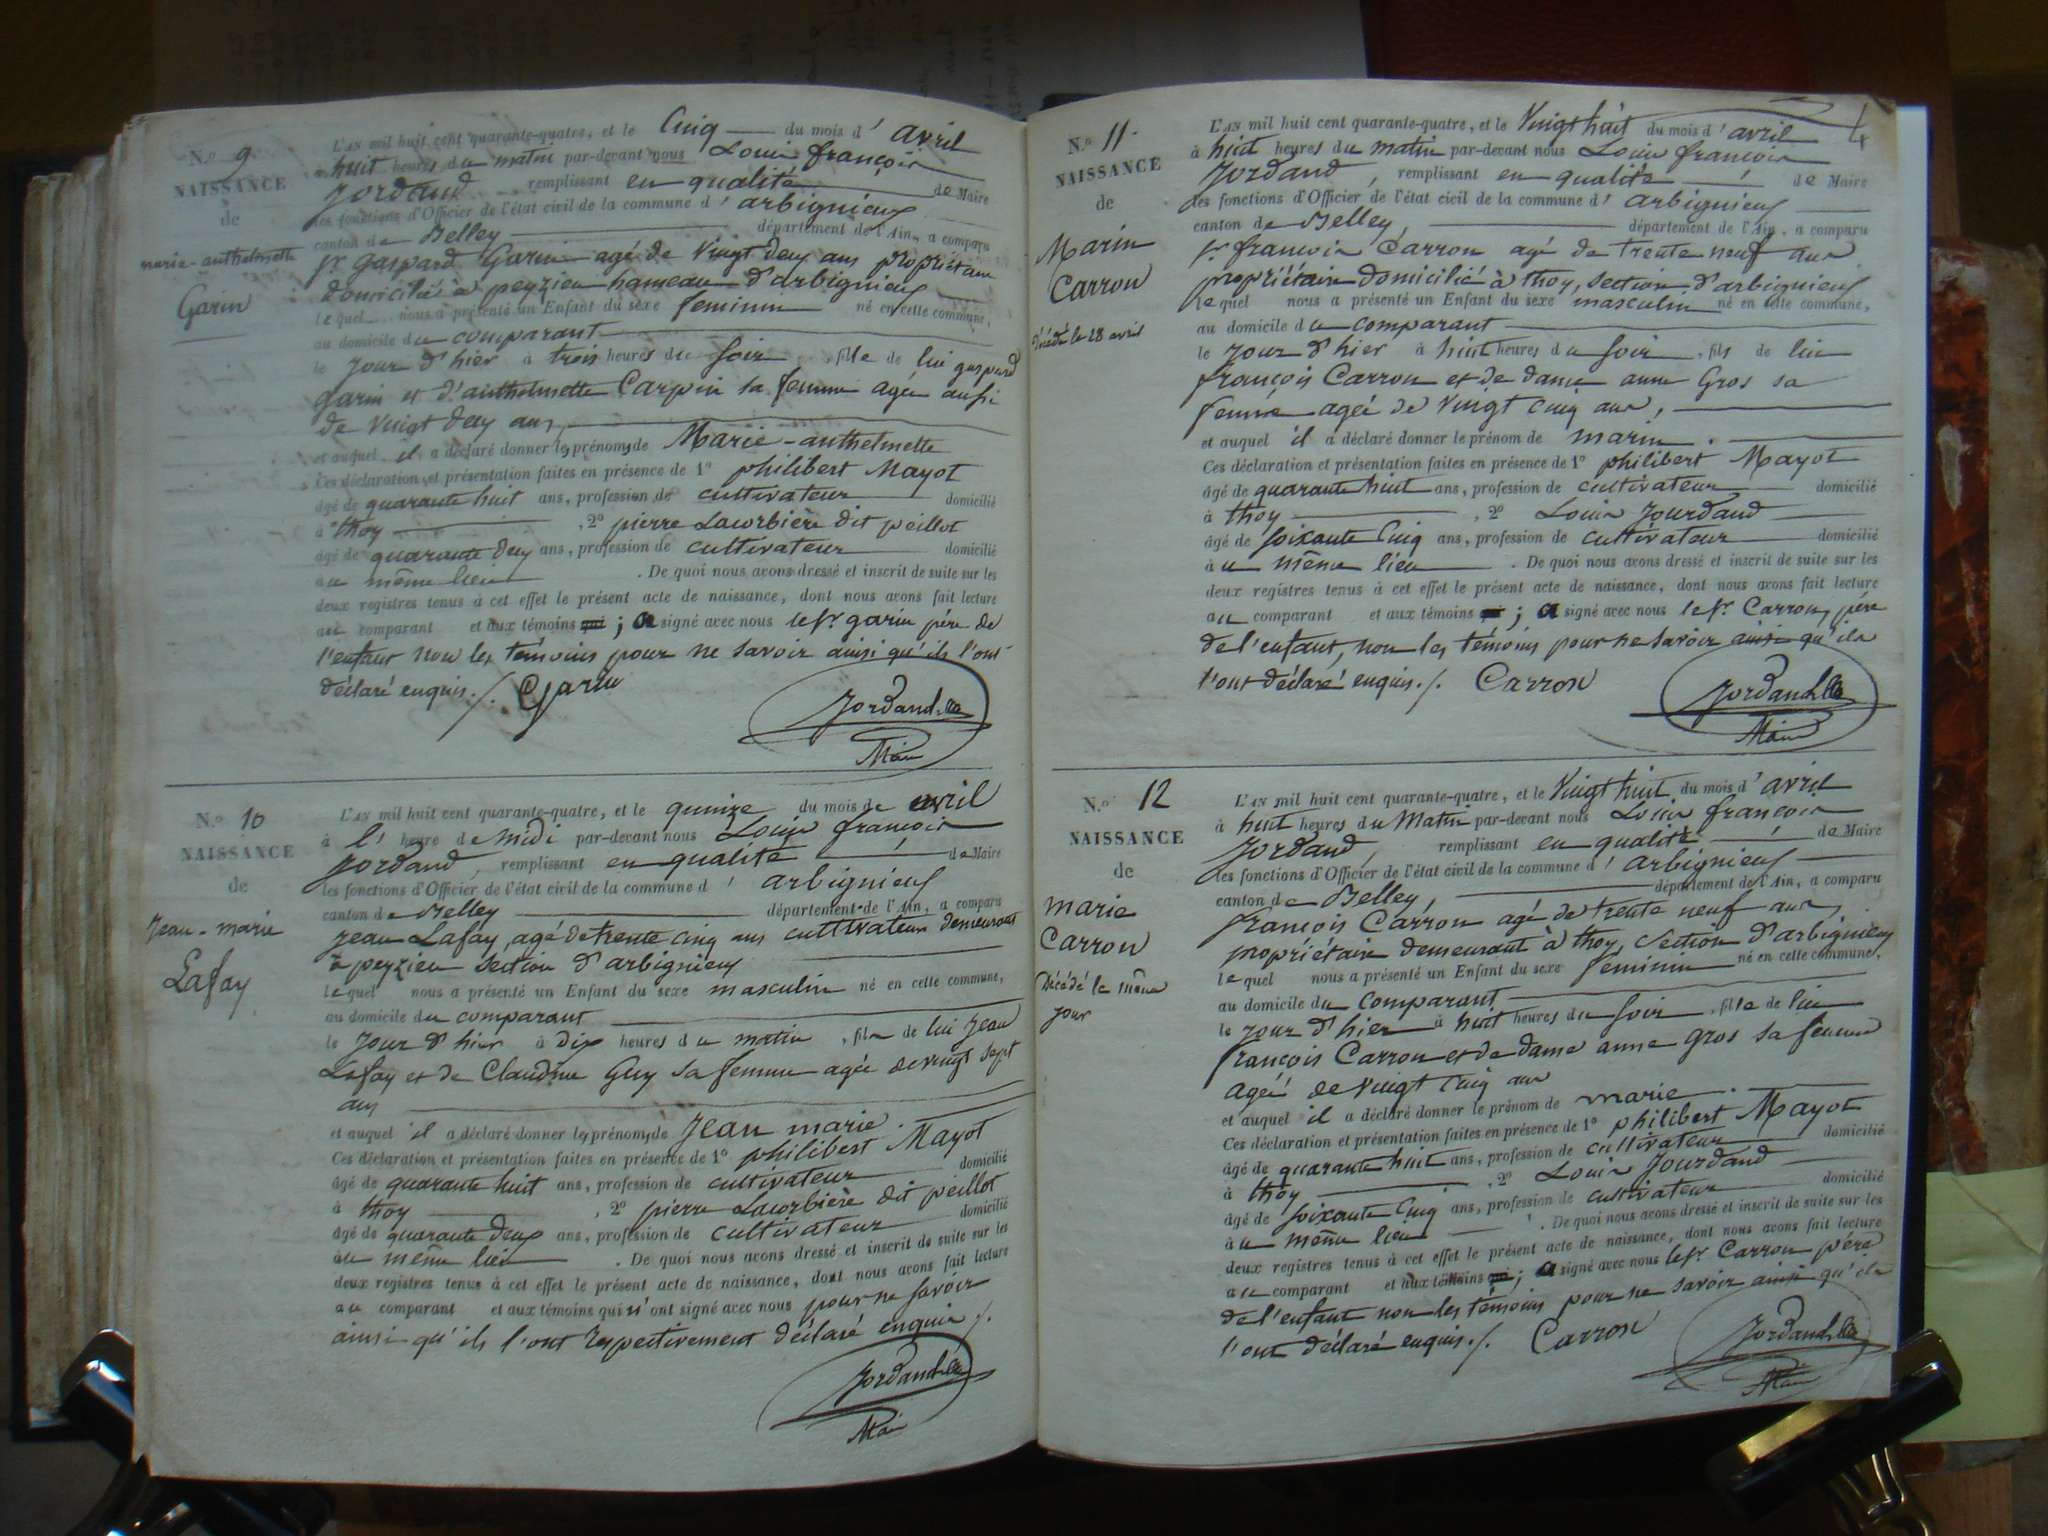 N.o 9
NAISSANCE
de
marie-anthelmette
Garin
L'AN mil huit cent quarante-quatre, et le Cinq du mois d' avril
à huit heures du matin par-devant nous Louis françois
Jordand remplissant en qualité de Maire
les fonctions d'Officier de l'état civil de la commune d' arbignieux
canton de Belley département de l'Ain, a comparu
Sr gaspard Garin agé de vingt deux ans propriétaire
domicilié à peyzieu hameau d'arbignieux
lequel nous a présenté un Enfant du sexe féminin né en cette commune,
au domicile du comparant
le jour d'hier à trois heures du soir , fille de lui gaspard
garin et d'anthelmette Carpin sa femme agée aussi
de vingt deux ans,
et auquel il a déclaré donner les prénoms de Marie-anthelmette
Ces déclaration et présentation faites en présence de 1o philibert Mayot
âgé de quarante huit ans, profession de cultivateur domicilié
à thoy , 2o pierre Lacorbière dit peillot
âgé de quarante deux ans, profession de cultivateur domicilié
au même lieu . De quoi nous avons dressé et inscrit de suite sur les
deux registres tenus à cet effet le présent acte de naissance, dont nous avons fait lecture
au comparant et aux témoins qui ; a signé avec nous le sr garin père de
l'enfant non les témoins pour ne savoir ainsi qu'ils l'ont
déclaré enquis ./. Garin
Jordand
Maire
N.o 10
NAISSANCE
de
Jean-marie
Lafay
L'AN mil huit cent quarante-quatre, et le quinze du mois de avril
à l' heure de midi par-devant nous Louis françois
Jordand, remplissant en qualité de Maire
les fonctions d'Officier de l'état civil de la commune d' arbignieux
canton de Belley département de l'Ain, a comparu
jean Lafay, agé de trente cinq ans cultivateur demeurant
à peyzieu section d'arbignieux
lequel nous a présenté un Enfant du sexe masculin né en cette commune,
au domicile du comparant
le jour d'hier à dix heures du matin , fils de lui jean
Lafay et de Claudine Guy sa femme agée de vingt sept
ans
et auquel il a déclaré donner les prénoms de Jean marie.
Ces déclaration et présentation faites en présence de 1o philibert Mayot
âgé de quarante huit ans, profession de cultivateur domicilié
à thoy , 2o pierre Lacorbière dit peillot
âgé de quarante deux ans, profession de cultivateur domicilié
au même lieu . De quoi nous avons dressé et inscrit de suite sur les
deux registres tenus à cet effet le présent acte de naissance, dont nous avons fait lecture
au comparant et aux témoins qui n'ont signé avec nous pour ne savoir
ainsi qu'ils l'ont respectivement déclaré enquis ./.
Jordand
Maire
4
N.o 11
NAISSANCE
de
Marin
Carron
Décédé le 28 avril
L'AN mil huit cent quarante-quatre, et le Vingt huit du mois d' avril
à huit heures du matin par-devant nous Louis françois
Jordand, remplissant en qualité de Maire
les fonctions d'Officier de l'état civil de la commune d' arbignieux
canton de Belley département de l'Ain, a comparu
Sr françois Carron agé de trente neuf ans
propriétaire domicilié à thoy, section d'arbignieux
lequel nous a présenté un Enfant du sexe masculin né en cette commune,
au domicile du comparant
le jour d'hier à huit heures du soir , fils de lui
françois Carron et de dame anne Gros sa
femme agée de vingt cinq ans,
et auquel il a déclaré donner le prénom de marin.
Ces déclaration et présentation faites en présence de 1o philibert Mayot
âgé de quarante huit ans, profession de cultivateur domicilié
à thoy , 2o Louis Jourdand
âgé de soixante cinq ans, profession de cultivateur domicilié
au même lieu . De quoi nous avons dressé et inscrit de suite sur les
deux registres tenus à cet effet le présent acte de naissance, dont nous avons fait lecture
au comparant et aux témoins qui ; a signé avec nous le sr Carron, père
de l'enfant, non les témoins pour ne savoir ainsi qu'ils
l'ont déclaré enquis ./. Carron
Jordand
Maire
N.o 12
NAISSANCE
de
marie
Carron
Décédé le même
jour
L'AN mil huit cent quarante-quatre, et le Vingt huit du mois d' avril
à huit heures du Matin par-devant nous Louis françois
Jordand, remplissant en qualité de Maire
les fonctions d'Officier de l'état civil de la commune d' arbignieux
canton de Belley, département de l'Ain, a comparu
françois Carron agé de trente neuf ans,
propriétaire demeurant à thoy, section d'arbignieux
lequel nous a présenté un Enfant du sexe féminin né en cette commune,
au domicile du comparant
le jour d'hier à huit heures du soir , fille de lui
françois Carron et de dame anne Gros sa femme
agée de vingt cinq ans
et auquel il a déclaré donner le prénom de marie.
Ces déclaration et présentation faites en présence de 1o philibert Mayot
âgé de quarante huit ans, profession de cultivateur domicilié
à thoy , 2o Louis Jourdand
âgé de soixante cinq ans, profession de cultivateur domicilié
au même lieu . De quoi nous avons dressé et inscrit de suite sur les
deux registres tenus à cet effet le présent acte de naissance, dont nous avons fait lecture
au comparant et aux témoins qui ; a signé avec nous le sr Carron père
de l'enfant non les témoins pour ne savoir ainsi qu'ils
l'ont déclaré enquis ./. Carron
Jordand
Maire